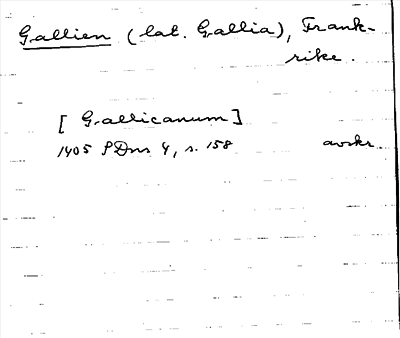 Gallien (lat. Gallia), Frank-
rike.
[Gallicanum]
1405 SDns 4, s. 158 avskr.